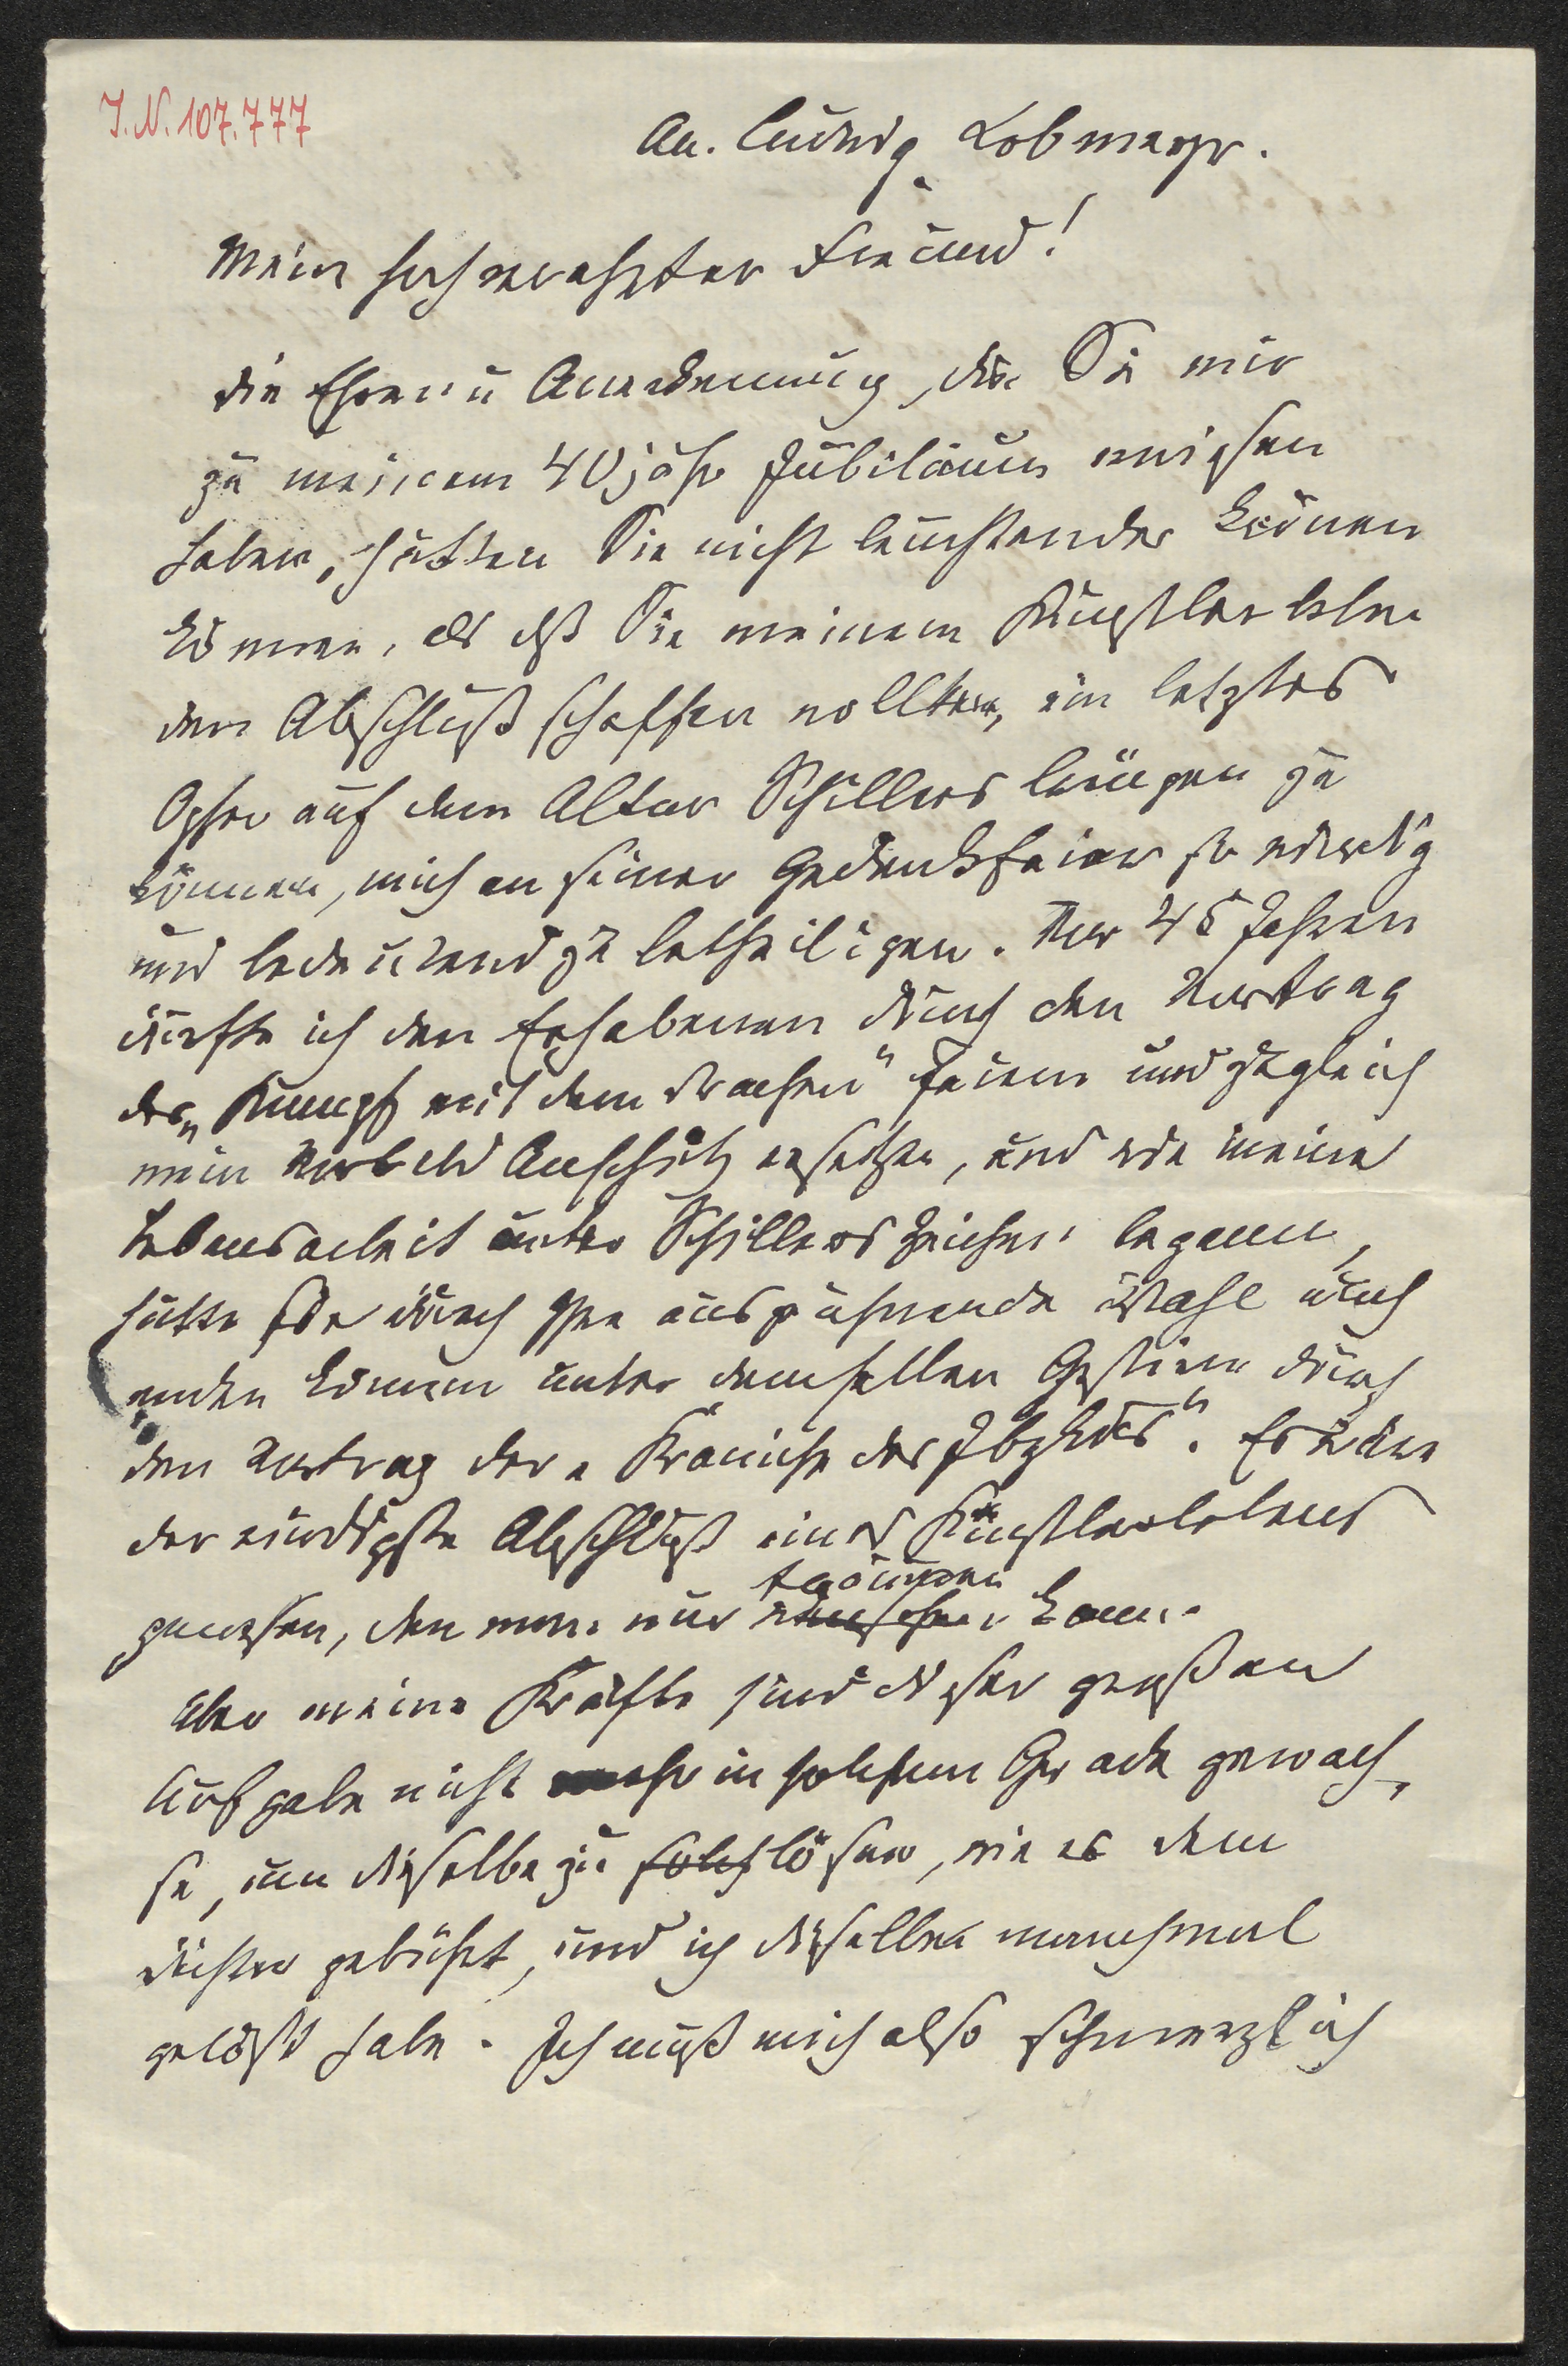 I. N. 107.777
An. Ludwig Lobmeyr.
Mein hochverehrter Freund!
die Ehren u Anerkennung, die Sie mir
zu meinem 40jähr Jubiläum erwiesen
haben, hätten Sie nicht leuchtender krönen
können, als daß Sie meinem Künstlerleben
den Abschluß schaffen wollten, ein letztes
Opfer auf dem Altar Schillers bringen zu
können, mich an seiner Gedenkfeier so würdig
und bedeutend zu betheiligen. Vor 45 Jahren
durfte ich den Erhabenen durch den Vortrag
des „Kampf mit dem Drachen" feiern und zugleich
mein Vorbild Anschütz ersetzen, und wie meine
Lebensarbeit unter Schillers Zeichen begann,
hätte sie durch Ihre auszeichnende Wahl auch
enden können unter demselben Gestirn durch
den Vortrag der „Kraniche des Ibykus". Es wäre
der würdigste Abschluß eines Künstlerlebens
gewesen, den man nur wünschen kann.
träumen
Aber meine Kräfte sind dieser großen
Aufgabe nicht mehr in solchem Grade gewach-
se, um dieselbe zu solch lösen, wie es dem
Dichter gebührt, und ich dieselbe manchmal
gelöst habe. Ich muß mich also schmerzlich